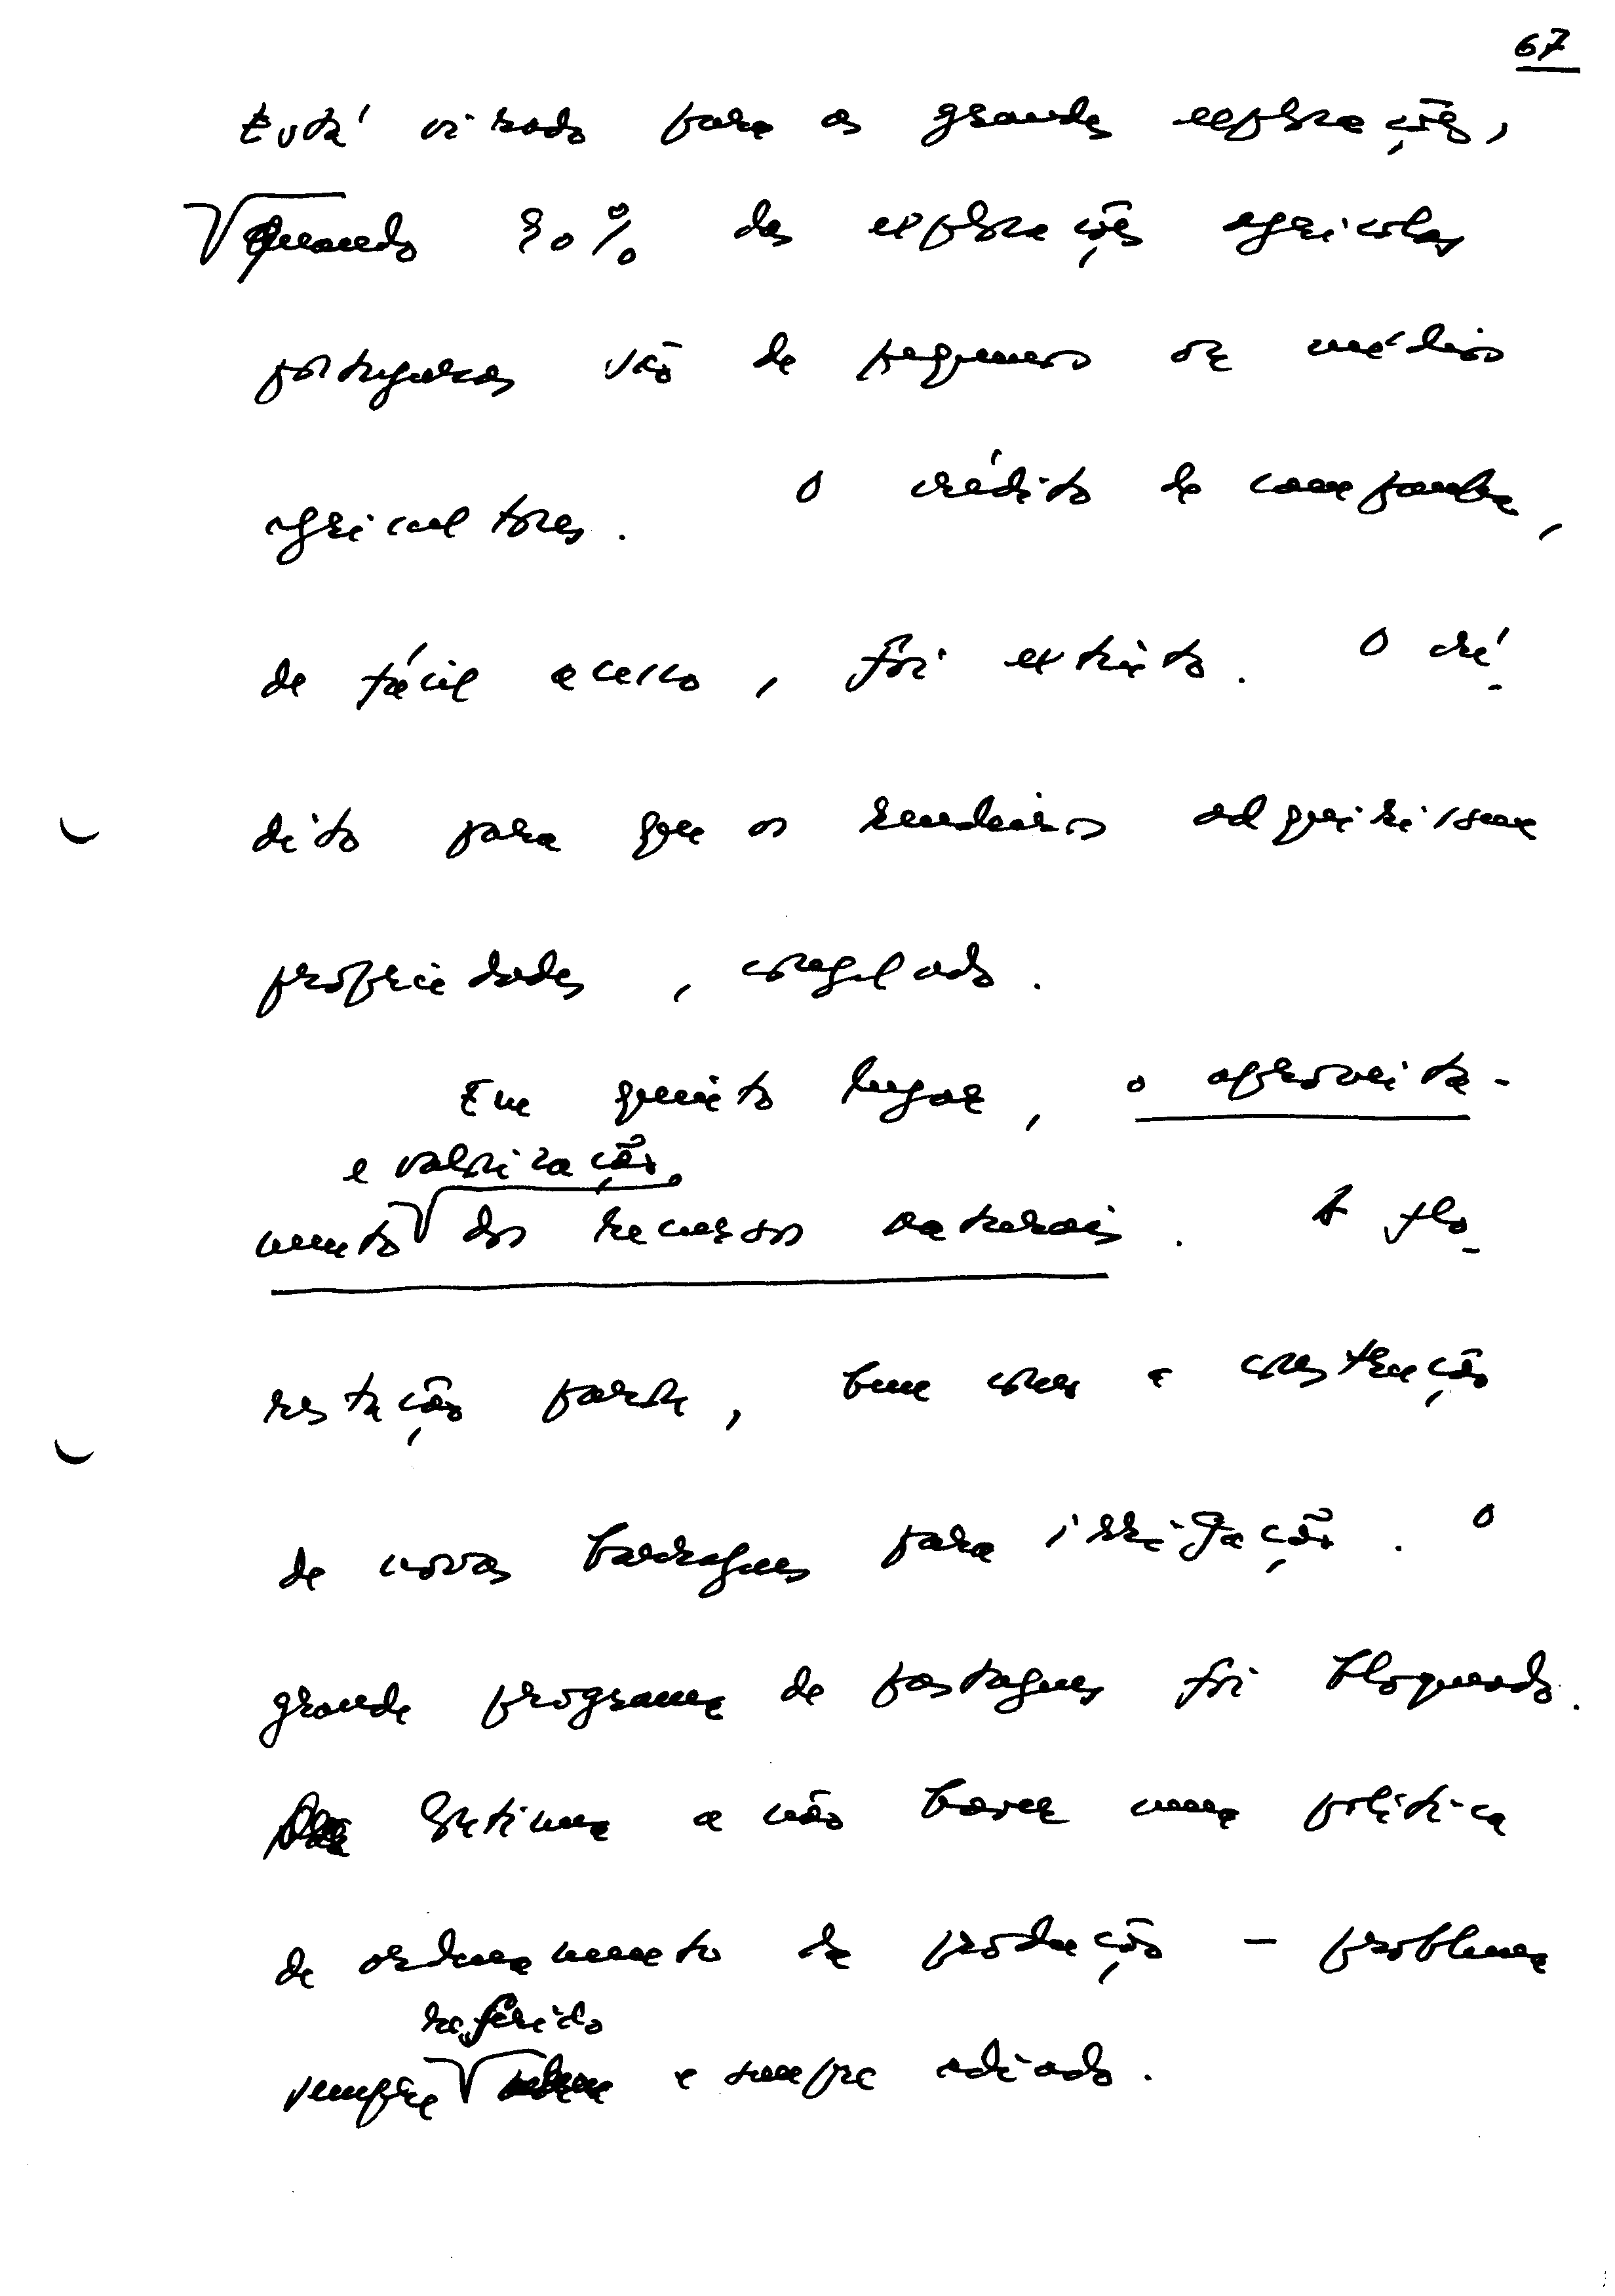 67
Está virado para as grandes explorações,
quando 90% das explorações agrícolas
portuguesas são de pequenos ou médios
agricultores. O crédito de campanha,
de fácil acesso, foi extinto. O cré-
dito para que os rendeiros adquirissem
propriedades, congelado.
Em quinto lugar, o aproveita-
e valorização
mento dos recursos naturais. A flo-
restação parou, bem como a construção
de novas barragens para irrigação. O
grande programa de pastagens foi bloqueado.
Continua a não haver uma política
de ordenamento da produção - problema
referido
sempre e sempre adiado.